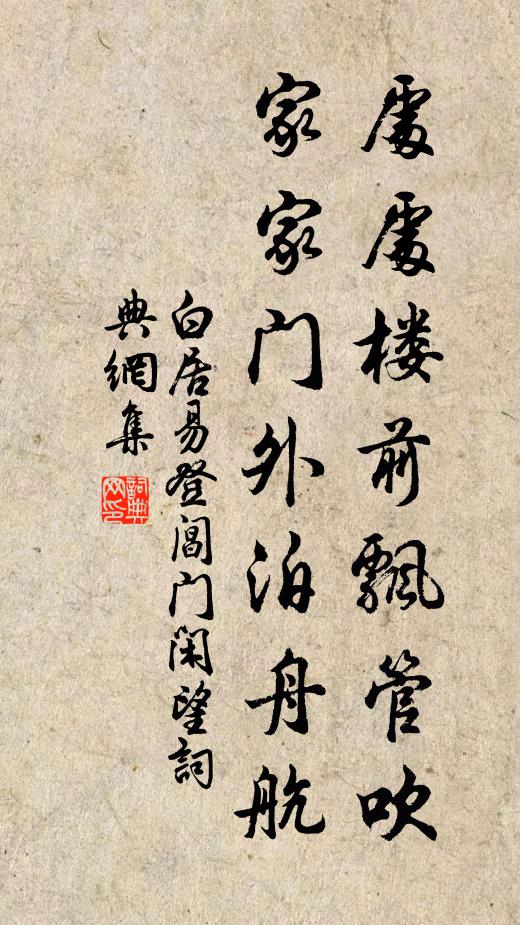 處處楼前飄管吹
家家门外泊舟航
白居易登閶门閑望詞
典網集
詞典
网印